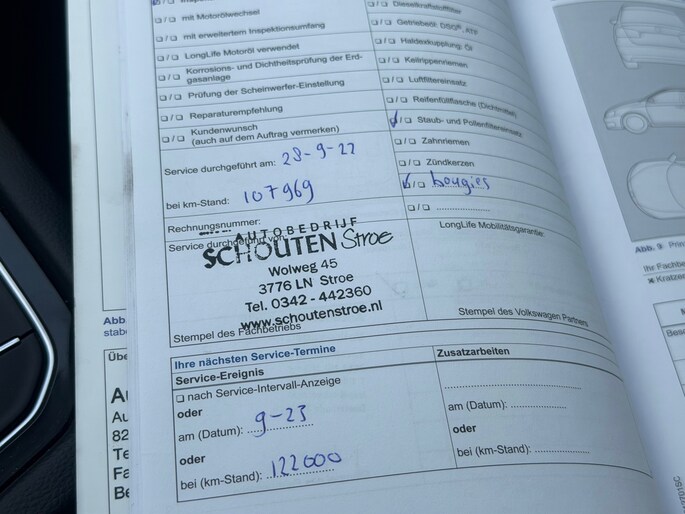 mit Motorölwechsel
mit erweitertem Inspektionsumfang
LongLife Motoröl verwendet
Korrosions- und Dichtheitsprüfung der Erd-
gasanlage
Prüfung der Scheinwerfer-Einstellung
Reparaturempfehlung
Kundenwunsch
(auch auf dem Auftrag vermerken)
Service durchgeführt am: 28-9-22
bei km-Stand: 107969
Rechnungsnummer:
Service durchgeführt von:
AUTOBEDRIJF
SCHOUTEN Stroe
Wolweg 45
3776 LN Stroe
Tel. 0342 - 442360
www.schoutenstroe.nl
Stempel des Fachbetriebs
Getriebeöl DSG®,
Haldexkupplung: Öl
Keilrippenriemen
Luftfiltereinsatz
Reifenfüllflasche (Dichtmittel)
Staub- und Pollenfiltereinsatz
Zahnriemen
Zündkerzen
bougies
LongLife Mobilitätsgarantie:
Stempel des Volkswagen Partners
Ihre nächsten Service-Termine
Service-Ereignis
nach Service-Intervall-Anzeige
oder
am (Datum): 9-23
oder
bei (km-Stand): 122000
Zusatzarbeiten
am (Datum):
oder
bei (km-Stand):
Abb. 9
Ihr